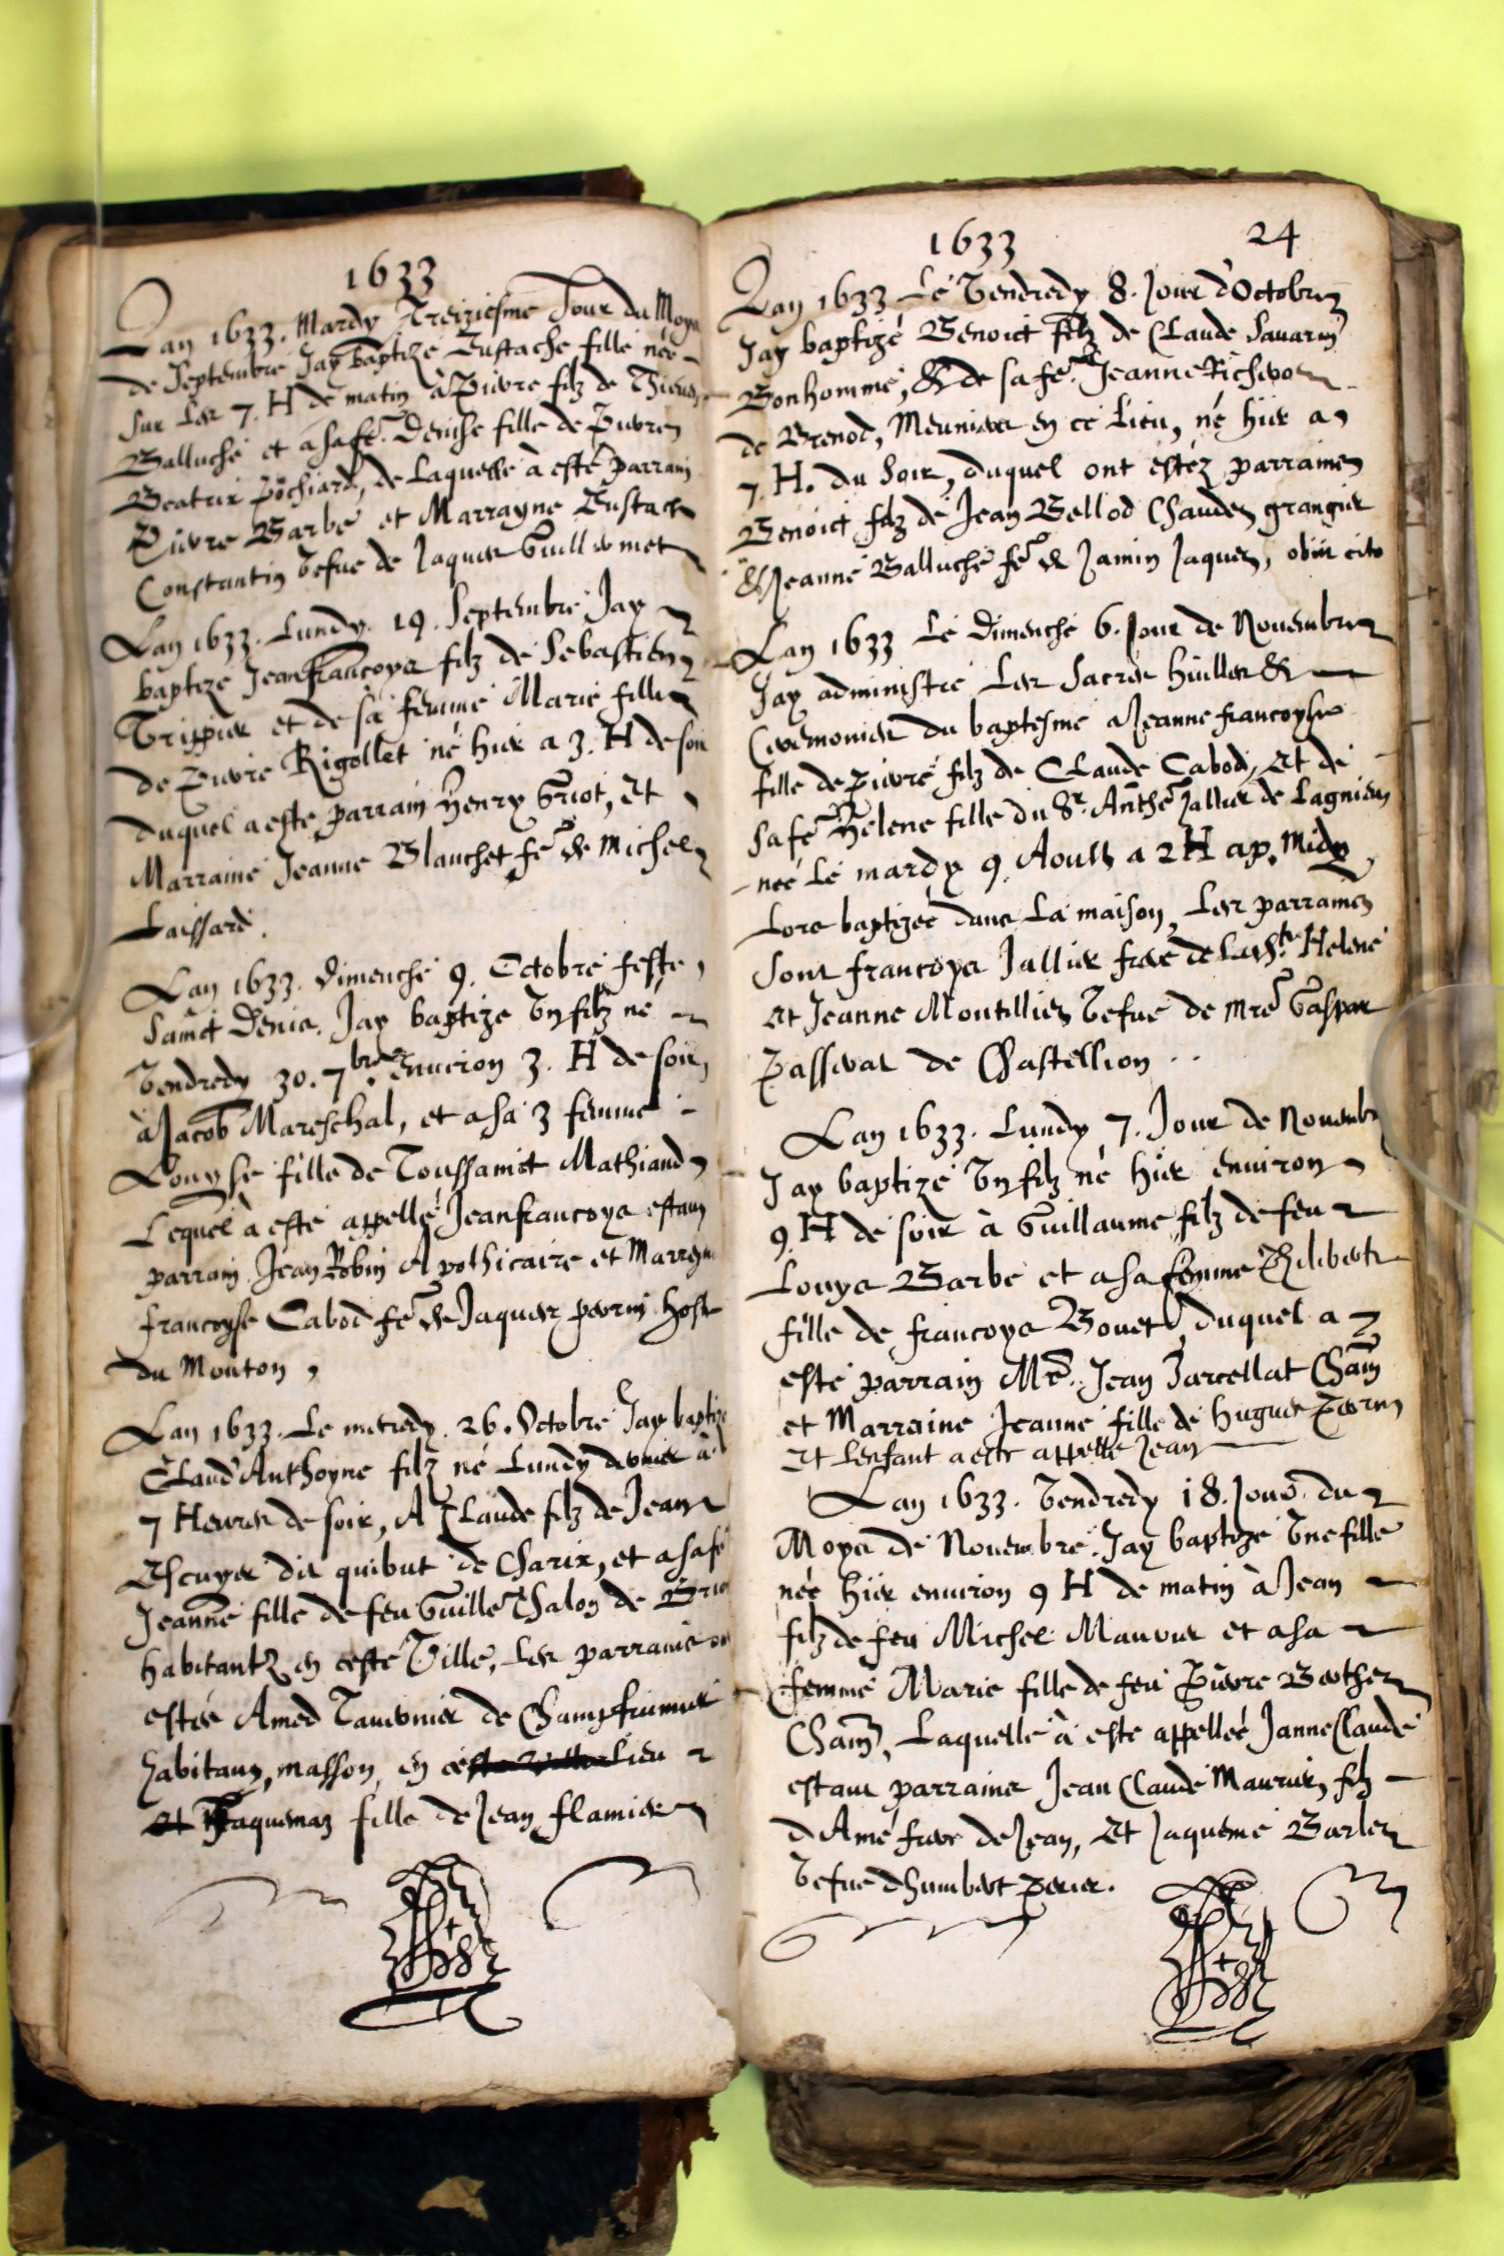 1633
Lan 1633. Mardy Treiziesme Jour du Moys
de Septembre Jay baptizé Eustache fille née
sur les 7. H de matin à Pierre filz de Thieven
Balluche et a sa fē. Denise fille de Pierre
Beatrix Pochiard, de Laquelle à esté parrain
Pierre Barbe et Marrayne Eustache
Constantin Vefue de Jaques Guillermet
Lan 1633. Lundy. 19. Septembre Jay
baptize Jeanfrancoys filz de Sebastien
Trippier et de sa femme Marie fille
de Pierre Rigollet né hier a 3. H de soir
duquel a esté parrain Henry Griot, Et
Marraine Jeanne Blanchet fē de Michel
Laissard.
Lan 1633. Dimenche 9. Octobre feste
Sainct Denis. Jay baptize Vn filz né
Vendredy 30. 7bre. enuiron 3. H de soir,
à Jacob Mareschal, et a sa 3 femme
Louyse fille de Toussainct Mathiand
Lequel à esté appellé Jeanfrancoys estant
parrain Jean Robin Apothicaire et Marreyne
francoyse Cabod fē de Jaques perrin hoste
du Mouton,
Lan 1633. Le mecredy. 26. Octobre Jay baptize
Claud' Anthoyne filz né Lundy dernier à
7 Heures de soir, A Claude filz de Jean
Escuyer dit quibut de Charix, et a sa fē
Jeanne fille de feu Guillē Chalon de
habitantz en ceste Ville, Les parrains on
estés Amed Tauernier de Champfrumier
habitant, masson, en ceste Lieu
et Jaquemaz fille de Jean flamier
1633 24
Lan 1633 Le Vendredy 8. Jour d'Octobre
Jay baptizé Benoict filz de Claude Sauarin
Bonhomme, & de sa fē. Jeanne
de Brenod, Meunier en ce Lieu, né hier a
7. H. du Soir, duquel ont estéz parraines
Benoict filz de Jean Bellod Chaudez grangier
& Jeanne Balluche fē de Jamin Jaques, obiit cito
Lan 1633 Le Dimenche 6. Jour de Nouembre
Jay administré Les Sacrés huilles &
Ceremonies du baptesme a Jeanne francoyse
fille de Pierre filz de Claude Cabod, Et de
Sa fē Helene fille du Sr. Anthē Jallier de Lagnieu
née Le mardy 9. Aoust a 2 H ap. Midy
Lors baptizée dans La maison, Les parraines
Sont francoys Jallier frere de Lad. Helene
et Jeanne Montillier Vefue de mrē Gaspar
Passerat de Chastellion..
Lan 1633. Lundy 7. Jour de Nouembre
Jay baptizé Vn filz né hier enuiron
9. H de soir à Guillaume filz de feu
Louys Barbe et a sa femme Philiberte
fille de francoys Bouet, duquel a
esté parrain Mrē. Jean Jarcellat Cham
et Marraine Jeanne fille de Hugues Perrin
Et Lenfant a este appelle Jean
Lan 1633. Vendredy 18. Jour du
Moys de Nouembre. Jay baptizé Vne fille
née hier enuiron 9 H de matin à Jean
filz de feu Michel Maurier et a sa
femme Marie fille de feu Pierre Berthet
Cham, Laquelle à esté appellée Janne Claude
estant parraines Jean Claude Maurier, filz
d'Amé frere de Jean, Et Jaqueme Barlet
Vefue d'humbert perier.